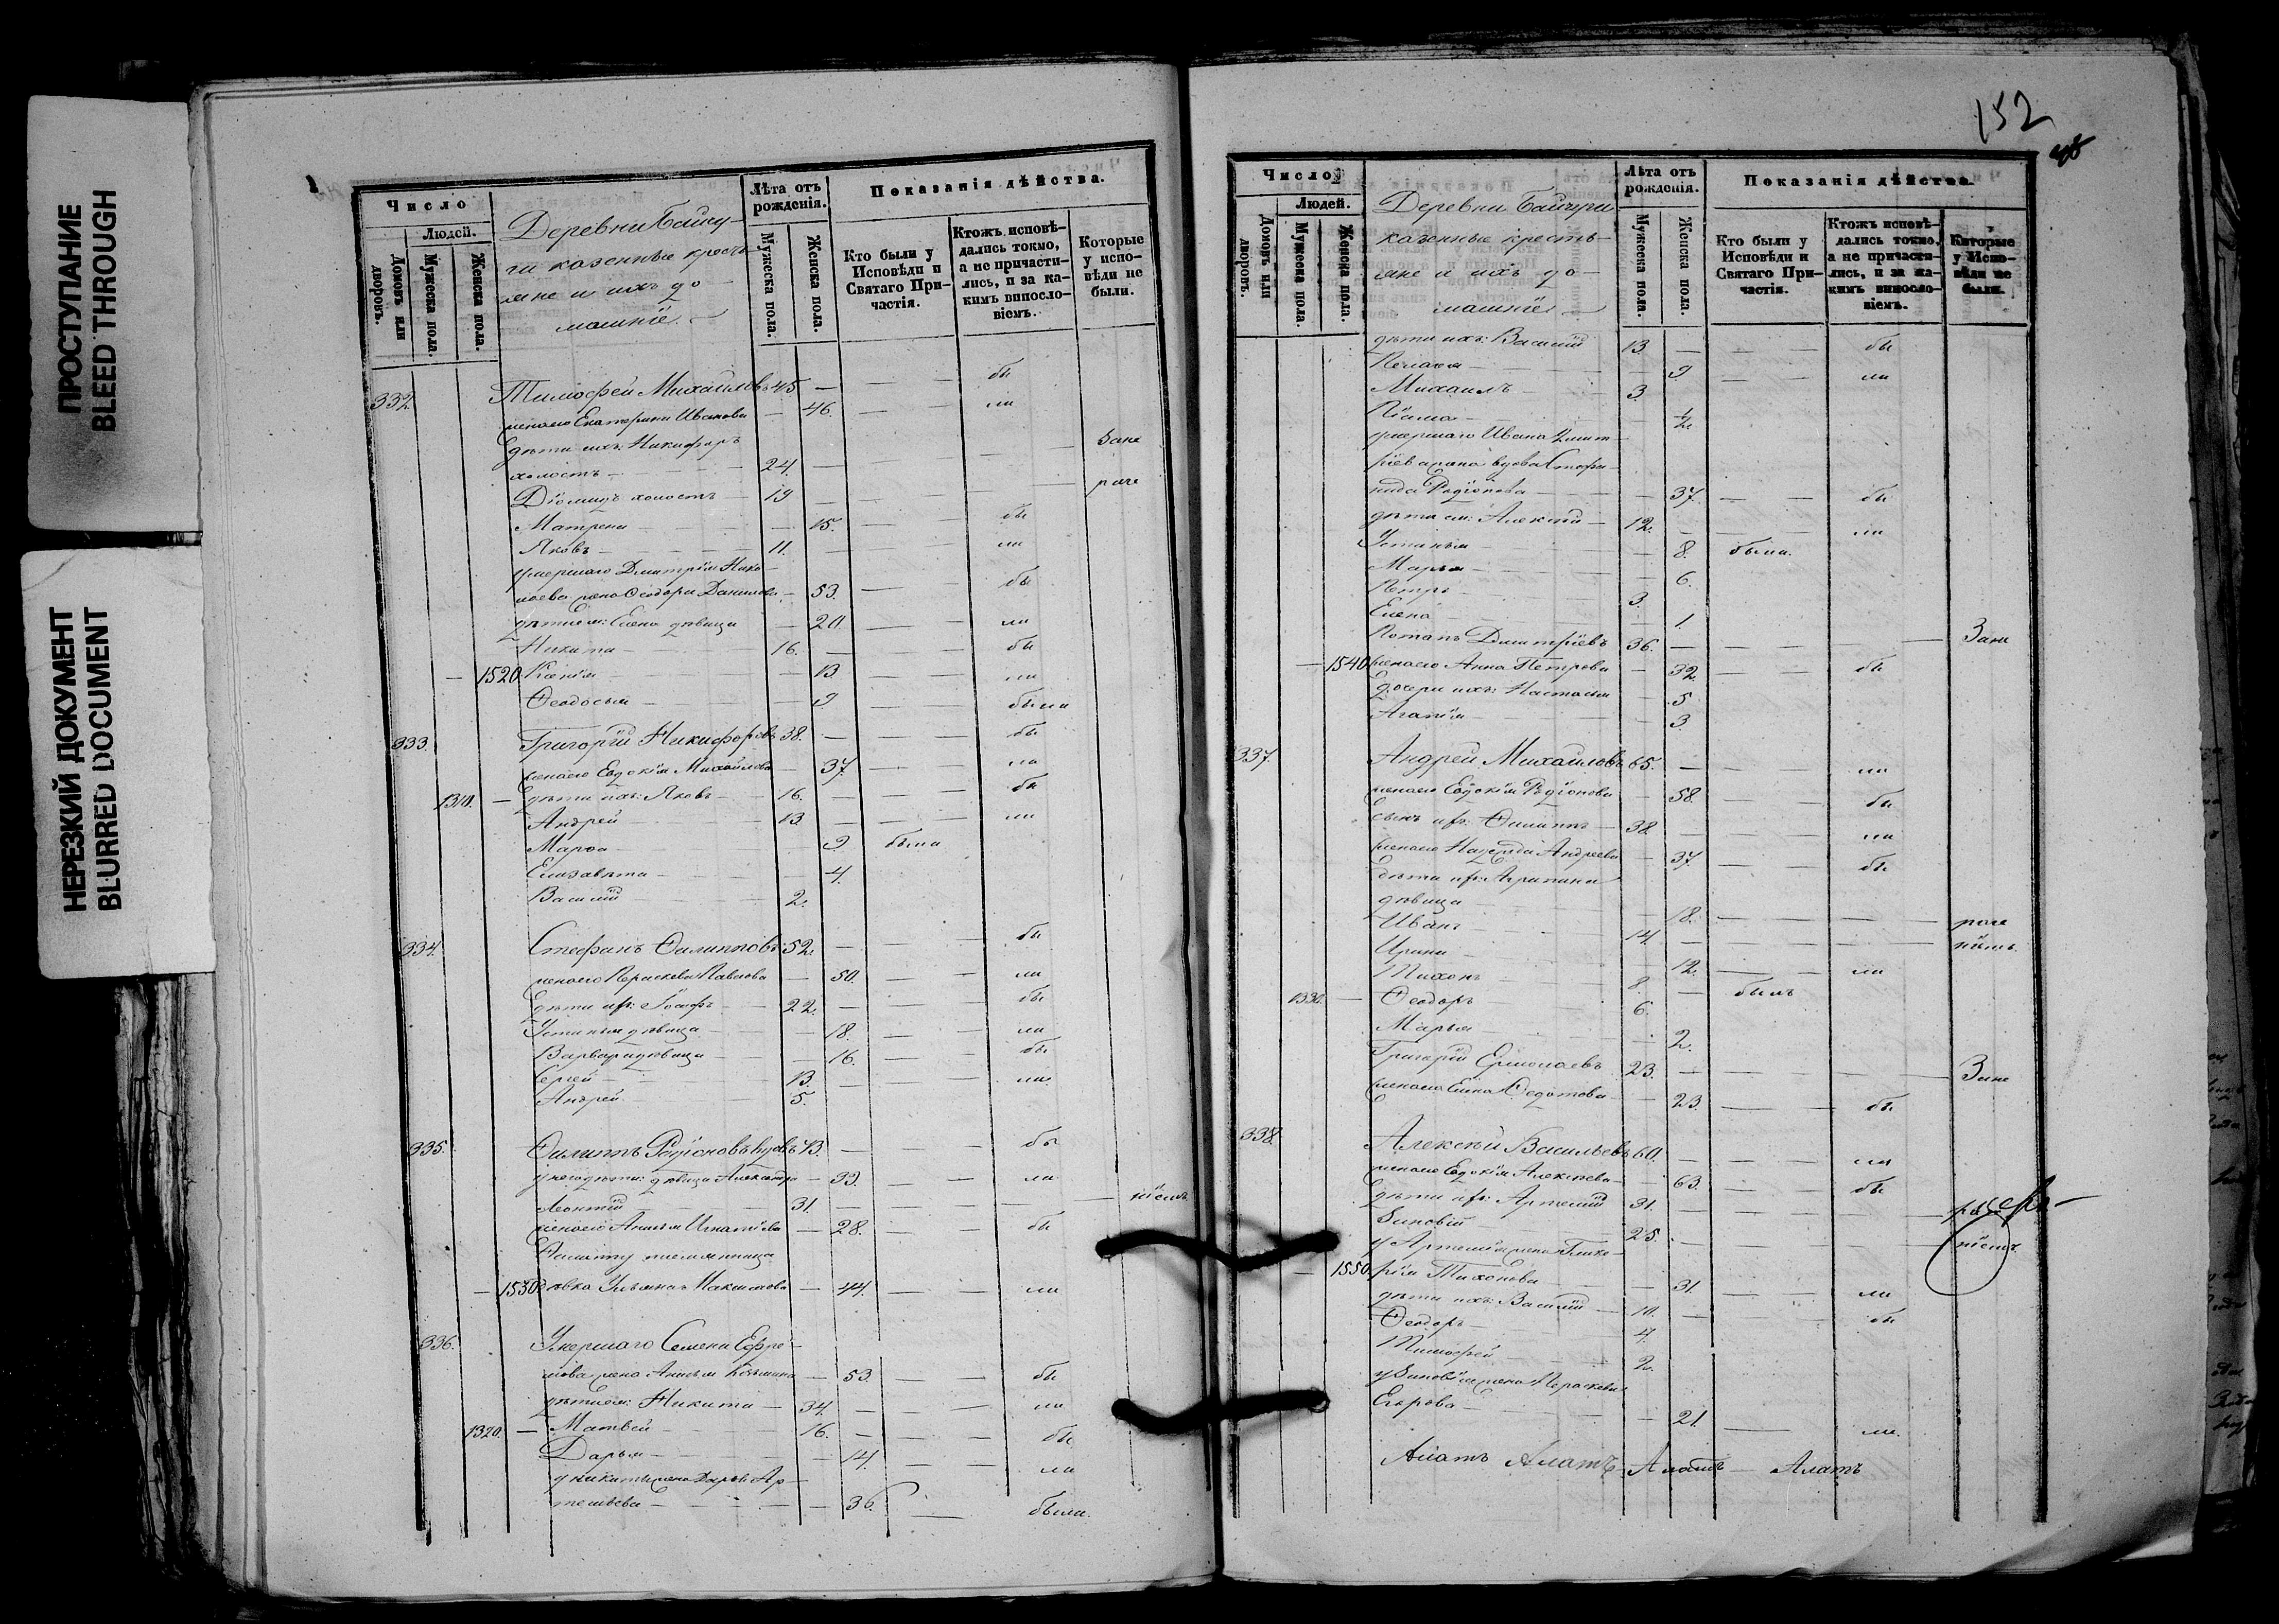 ПРОСТУПАНИЕ
BLEED THROUGH
НЕРЕЗКИЙ ДОКУМЕНТ
BLURRED DOCUMENT
Число
Людей.
Домовъ или дворовъ.
Мужеска пола.
Женска пола.
Деревни
казенные кресть-
яне и ихъ до-
машніе
Лѣта отъ рожденія.
Мужеска пола.
Женска пола.
Показанія дѣйства.
Кто были у Исповѣди и Святаго Причастія.
Ктожъ исповѣдались токмо, а не причастились, и за какимъ винословіемъ.
Которые у исповѣди не были.
332 Тимофей Михайловъ 45 — бы
жена его Екатерина Иванова — 46. ли
дѣти ихъ: Никифоръ
холостъ — 24.
Діомидъ холостъ — 19
Матрена — 15. бы
Яковъ — 11. ли
умершаго Дмитрія Нико-
лаева жена Ѳеодора Данилова — 53. бы
дѣти ея: Елена дѣвица — 20. ли
Никита — 16. бы
— 1520. Ксенія — 13 ли
Ѳеодосья — 9 были
333. Григорій Никифоровъ 38. — бы
жена его Евдокія Михайлова — 37. ли
1310. — дѣти ихъ: Яковъ — 16. бы
Андрей — 13. ли
Марѳа — 9 была
Елизавета — 4.
Василій — 2.
334. Стефанъ Филипповъ 52. — бы
жена его Параскева Павлова — 50. ли
дѣти ихъ: Іосифъ — 22. бы
Устинья дѣвица — 18. ли
Варвара дѣвица — 16. бы
Сергей — 13. ли
Андрей — 5.
335. Филиппъ Родіоновъ вдовъ 73. — бы
у него дѣти: дѣвица Александра — 33. ли
Леонтій — 31.
жена его Анисья Игнатіева — 28. бы
Филиппу племянница
— 1530. дѣвка Ульяна Максимова — 44. ли
336. Умершаго Семена Ефре-
мова жена Анисья Козьмина — 53. бы
дѣти ея: Никита — 34. ли
1320. — Матвей — 16. бы
Дарья — 14. ли
у Никиты жена Дарья Ар-
темьева — 36. были.
152
Число
Людей.
Домовъ или дворовъ.
Мужеска пола.
Женска пола.
Деревни
казенные кресть-
яне и ихъ до-
машніе
Лѣта отъ рожденія.
Мужеска пола.
Женска пола.
Показанія дѣйства.
Кто были у Исповѣди и Святаго Причастія.
Ктожъ исповѣдались токмо, а не причастились, и за какимъ винословіемъ.
Которые у Исповѣди не были.
дѣти ихъ: Василій 13. — бы
Пелагея — 9. ли
Михаилъ — 3.
½
умершаго Ивана Дмит-
ріева жена вдова Стефа-
нида Родіонова — 37. бы
дѣти ея: Алексей — 12. ли
Устинья — 8. была.
Марья — 6.
Петръ — 3.
Елена — 1.
Потапъ Дмитріевъ 36.
— 1540 жена его Анна Петрова — 32. бы
дочери ихъ: Настасья — 5
Агапія — 3.
337. Андрей Михайловъ 65. — ли
жена его Евдокія Родіонова — 58. бы
сынъ ихъ: Филиппъ — 38. ли
жена его Надежда Андреева — 37. бы
дѣти ихъ: Агрипина
дѣвица — 18.
Иванъ — 14.
Ирина — 12. ли
Тихонъ — 8. былъ
1330. — Ѳеодоръ — 6.
Марья — 2.
Григорій Ермолаевъ 23.
жена его Елена Федотова — 23. бы
338. Алексѣй Васильевъ 60. — ли
жена его Евдокія Алексѣева — 63. бы
дѣти ихъ: Артемій 31.
Зиновій — 25.
у Артемія жена Глике-
— 1550. рія Тихонова — 31. ли
дѣти ихъ: Василій — 10. бы
Ѳеодоръ — 4.
Тимофей — 2.
у Зиновія жена Параскева
Егорова — 21. ли.